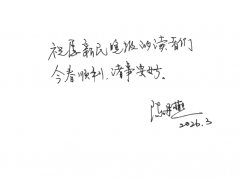 祝愿新民晚报的读者们
今春顺利、诸事安好。
陈丹燕
2026.3